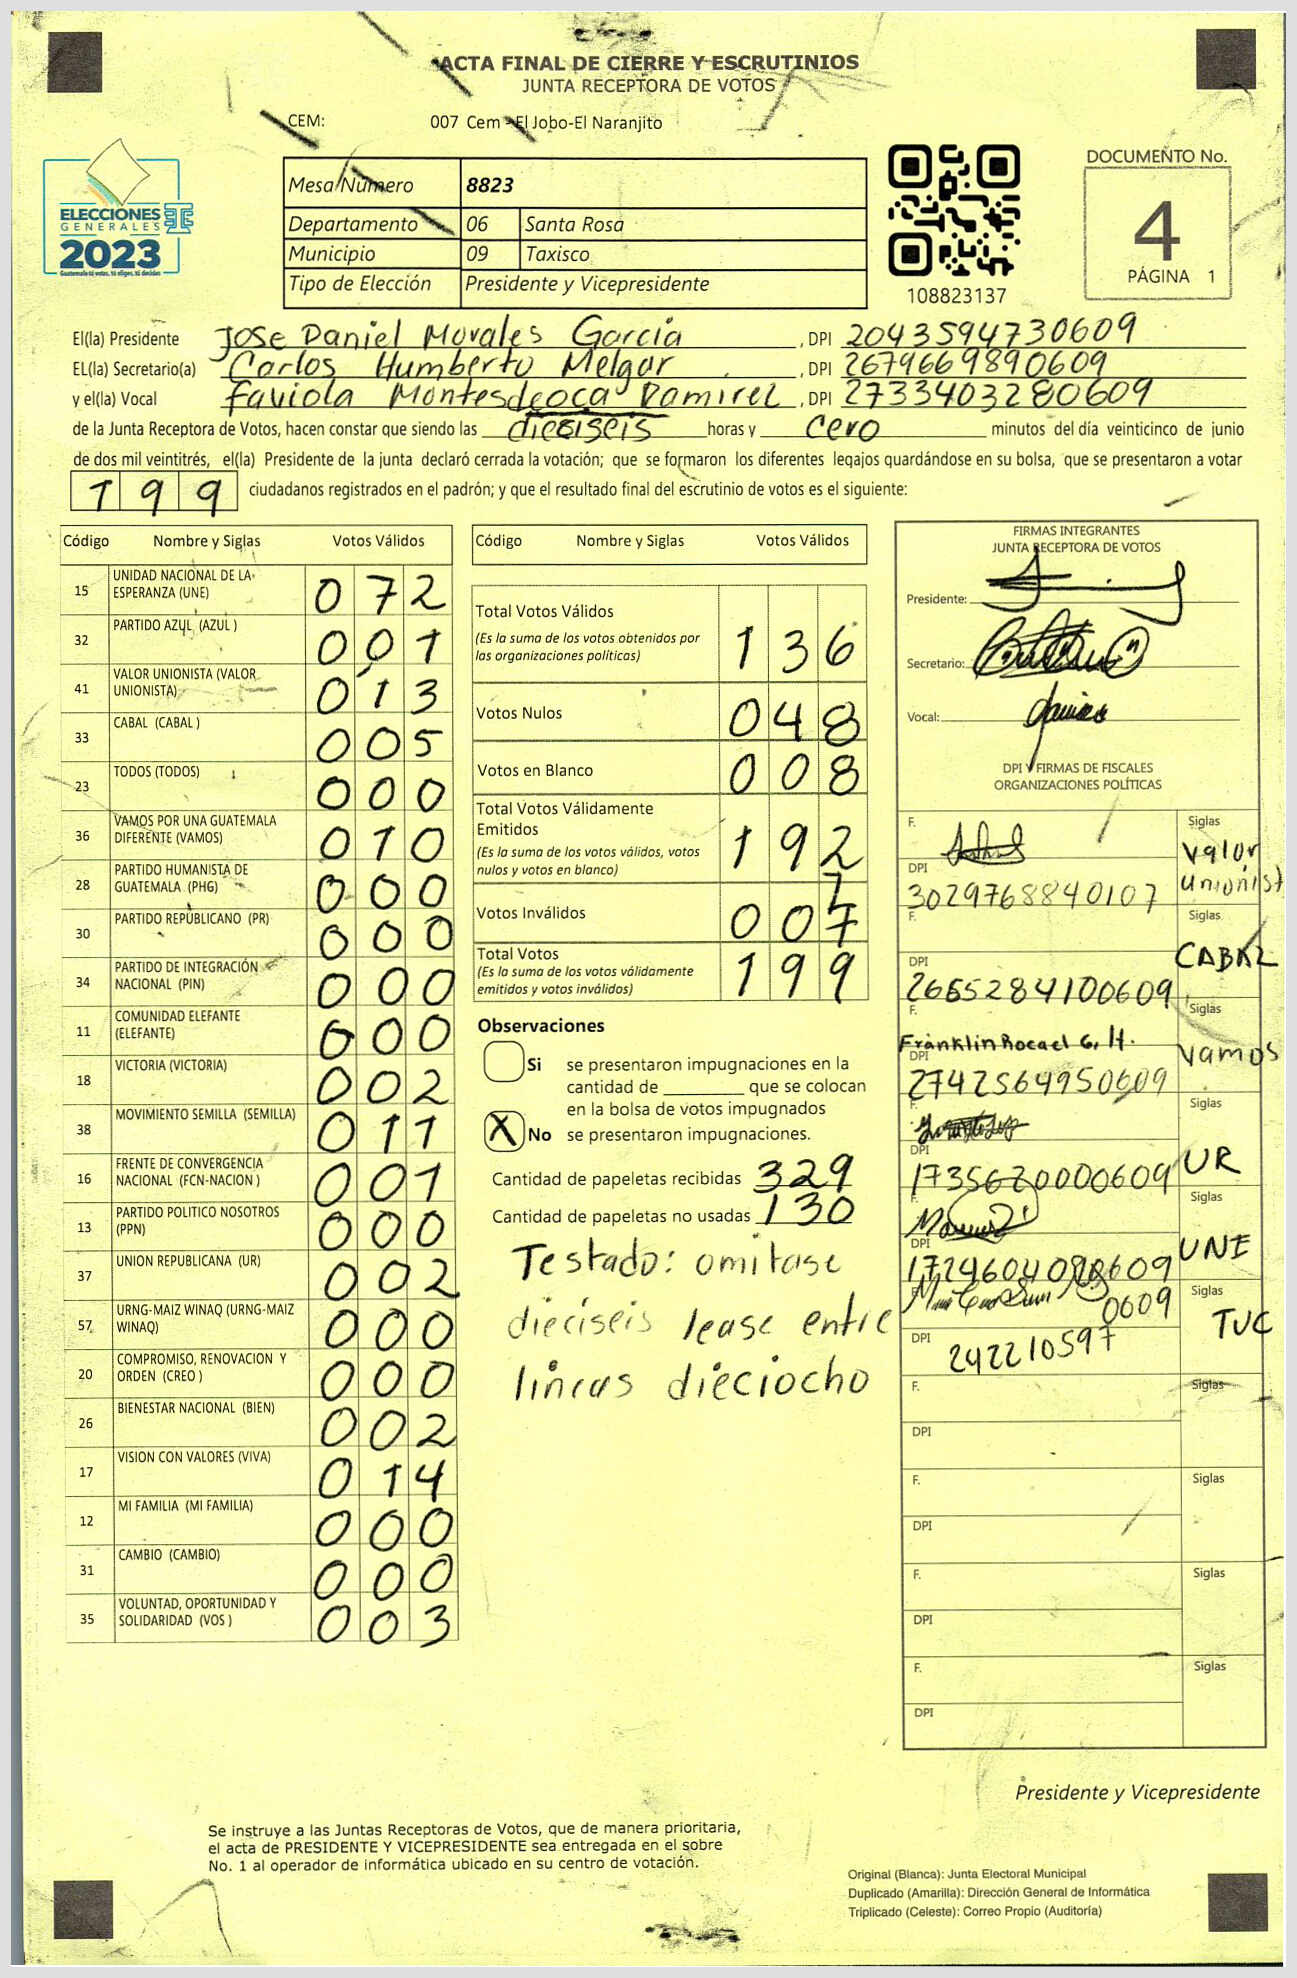 ACTA FINAL DE CIERRE Y ESCRUTINIOS
JUNTA RECEPTORA DE VOTOS
CEM: 007 Cem -El Jobo-El Naranjito
ELECCIONES
GENERALES
2023
Guatemala tú votas, tú eliges, tú decides
Mesa Número 8823
Departamento 06 Santa Rosa
Municipio 09 Taxisco
Tipo de Elección Presidente y Vicepresidente
108823137
DOCUMENTO No.
4
PÁGINA 1
El(la) Presidente Jose Daniel Morales Garcia , DPI 2043594730609
EL(la) Secretario(a) Carlos Humberto Melgar , DPI 2679669890609
y el(la) Vocal Faviola Montesdeoca Ramirez , DPI 2733403280609
de la Junta Receptora de Votos, hacen constar que siendo las dieciseis horas y cero minutos del día veinticinco de junio
de dos mil veintitrés, el(la) Presidente de la junta declaró cerrada la votación; que se formaron los diferentes legajos guardándose en su bolsa, que se presentaron a votar
199 ciudadanos registrados en el padrón; y que el resultado final del escrutinio de votos es el siguiente:
Código Nombre y Siglas Votos Válidos
15 UNIDAD NACIONAL DE LA ESPERANZA (UNE) 072
32 PARTIDO AZUL (AZUL ) 001
41 VALOR UNIONISTA (VALOR UNIONISTA) 013
33 CABAL (CABAL ) 005
23 TODOS (TODOS) 000
36 VAMOS POR UNA GUATEMALA DIFERENTE (VAMOS) 010
28 PARTIDO HUMANISTA DE GUATEMALA (PHG) 000
30 PARTIDO REPUBLICANO (PR) 000
34 PARTIDO DE INTEGRACIÓN NACIONAL (PIN) 000
11 COMUNIDAD ELEFANTE (ELEFANTE) 000
18 VICTORIA (VICTORIA) 002
38 MOVIMIENTO SEMILLA (SEMILLA) 011
16 FRENTE DE CONVERGENCIA NACIONAL (FCN-NACION ) 001
13 PARTIDO POLITICO NOSOTROS (PPN) 000
37 UNION REPUBLICANA (UR) 002
57 URNG-MAIZ WINAQ (URNG-MAIZ WINAQ) 000
20 COMPROMISO, RENOVACION Y ORDEN (CREO ) 000
26 BIENESTAR NACIONAL (BIEN) 002
17 VISION CON VALORES (VIVA) 014
12 MI FAMILIA (MI FAMILIA) 000
31 CAMBIO (CAMBIO) 000
35 VOLUNTAD, OPORTUNIDAD Y SOLIDARIDAD (VOS ) 003
Código Nombre y Siglas Votos Válidos
Total Votos Válidos 136
(Es la suma de los votos obtenidos por
las organizaciones políticas)
Votos Nulos 048
Votos en Blanco 008
Total Votos Válidamente
Emitidos 192
(Es la suma de los votos válidos, votos
nulos y votos en blanco)
Votos Inválidos 007
Total Votos 199
(Es la suma de los votos válidamente
emitidos y votos inválidos)
Observaciones
Si se presentaron impugnaciones en la
cantidad de ________ que se colocan
en la bolsa de votos impugnados
X No se presentaron impugnaciones.
Cantidad de papeletas recibidas 329
Cantidad de papeletas no usadas 130
Testado: omitase
dieciseis lease entre
lineas dieciocho
FIRMAS INTEGRANTES
JUNTA RECEPTORA DE VOTOS
Presidente:
Secretario:
Vocal:
DPI Y FIRMAS DE FISCALES
ORGANIZACIONES POLÍTICAS
F. Siglas Valor Unionist
DPI 3029768840107
F. Siglas CABAL
DPI 2665284100609
F. Franklin Rocael G. H. Siglas Vamos
DPI 2742564950609
F. Siglas UR
DPI 1735620000609
F. Siglas UNE
DPI
Siglas TUC
DPI 242210597 0609
F. Siglas
DPI
F. Siglas
DPI
F. Siglas
DPI
F. Siglas
DPI
Presidente y Vicepresidente
Se instruye a las Juntas Receptoras de Votos, que de manera prioritaria,
el acta de PRESIDENTE Y VICEPRESIDENTE sea entregada en el sobre
No. 1 al operador de informática ubicado en su centro de votación.
Original (Blanca): Junta Electoral Municipal
Duplicado (Amarilla): Dirección General de Informática
Triplicado (Celeste): Correo Propio (Auditoría)